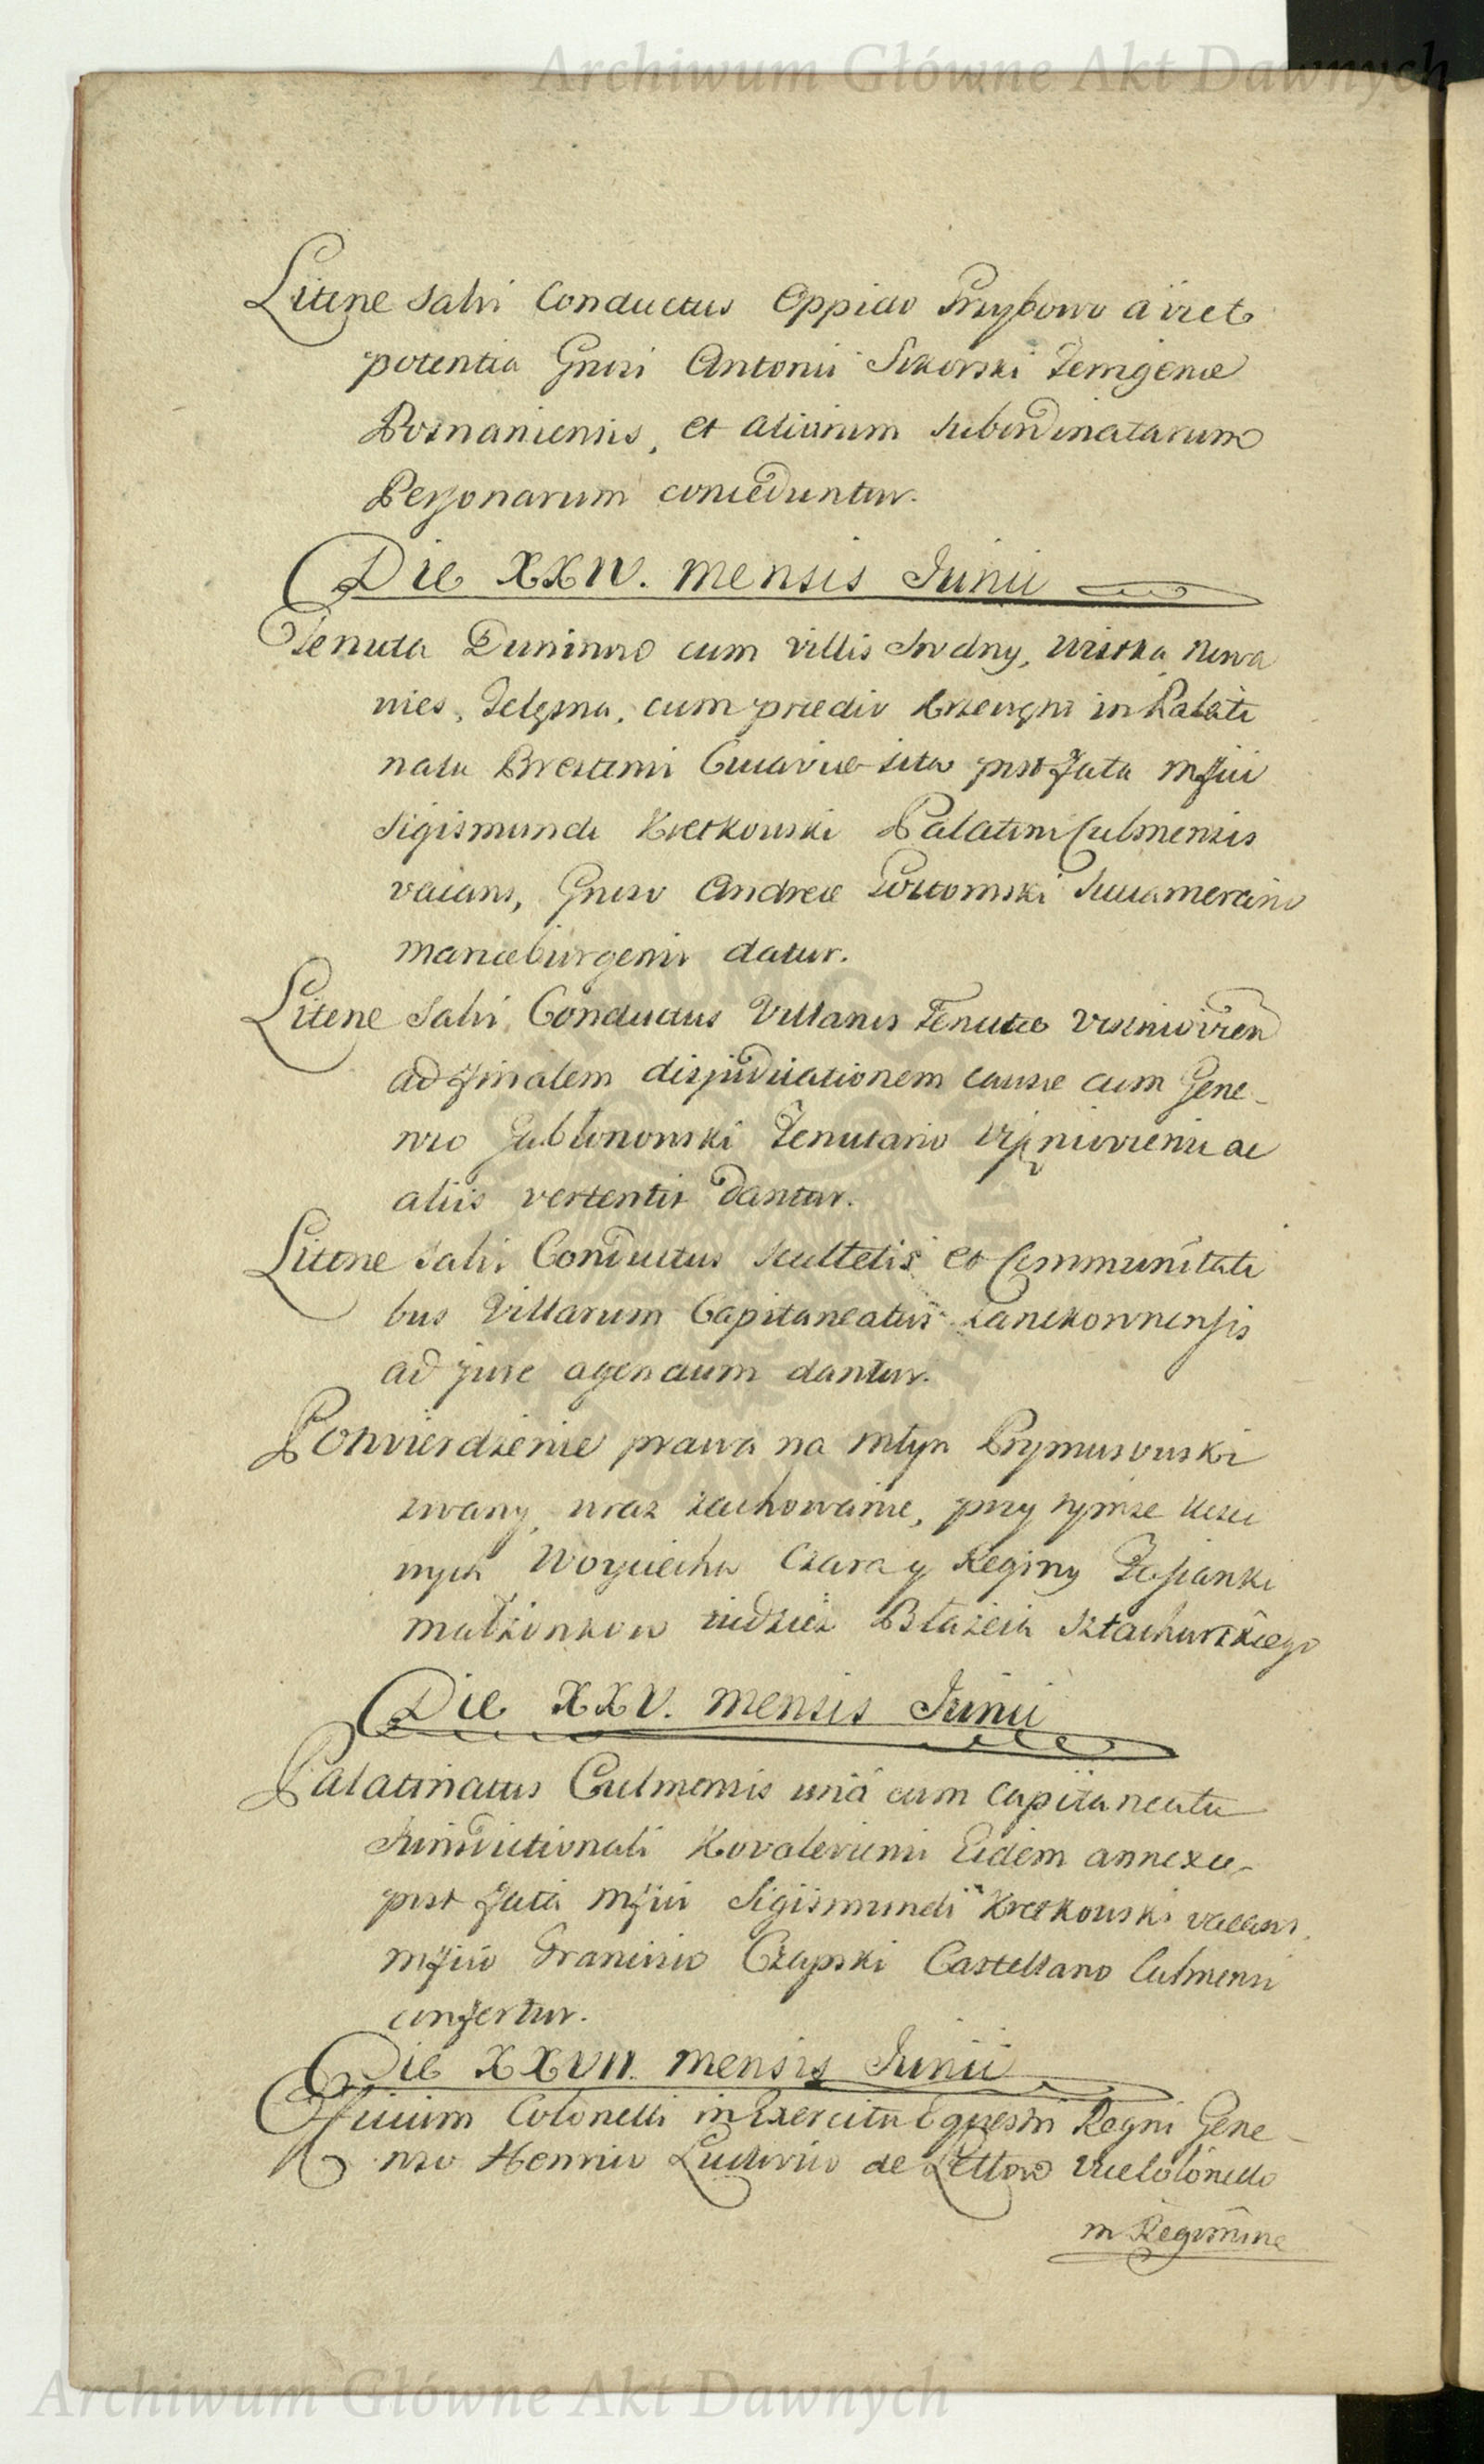 Archiwum Główne Akt Dawnych
Literæ Salvi Conductus Oppido Przybowo a vi et
potentia Gnrsi Antonii Sikorski Terrigenæ
Posnaniensis, et aliarum subordinatarum
Personarum conceduntur.
Die XXIV. mensis Junii
Tenuta Duninow cum villis Srodny, Wistka Nowa
wies, Telężna, cum prædio in Palati
natu Brestensi Cujaviæ sita post fata Mfici
Sigismundi Kretkowski Palatini Culmensis
vacans, Gnroso Andreæ Succamerario
Mariæburgensi datur.
Literæ Salvi Conductus Villanis Tenutæ
ad finalem disjudicationem causæ cum Gene-
roso Jabłonowski Tenutario ac
aliis vertentis dantur.
Literæ Salvi Conductus Scultetis et Communitati
bus Villarum Capitaneatus Lanckornensis
ad jure agendum dantur.
Potwierdzenie prawa na młyn Prymusowski
zwany, wraz zachowanie, przy tymże Uczci
wych Woyciecha Czara y Reginy
małżonkow tudzież Błażeia Sztachurskiego
Die XXV. mensis Junii
Palatinatus Culmensis unà cum Capitaneatu
Jurisdictionali Kovaleviensi Eidem annexo
post fata Mfici Sigismundi Kretkowski vacans,
Mfico Francisco Czapski Castellano Culmensi
confertur.
Die XXVII. mensis Junii
Officium Colonelli in Exercitu Equestri Regni Gene-
roso Henrico Ludovico de Vicecolonello
in Regimine
Archiwum Główne Akt Dawnych